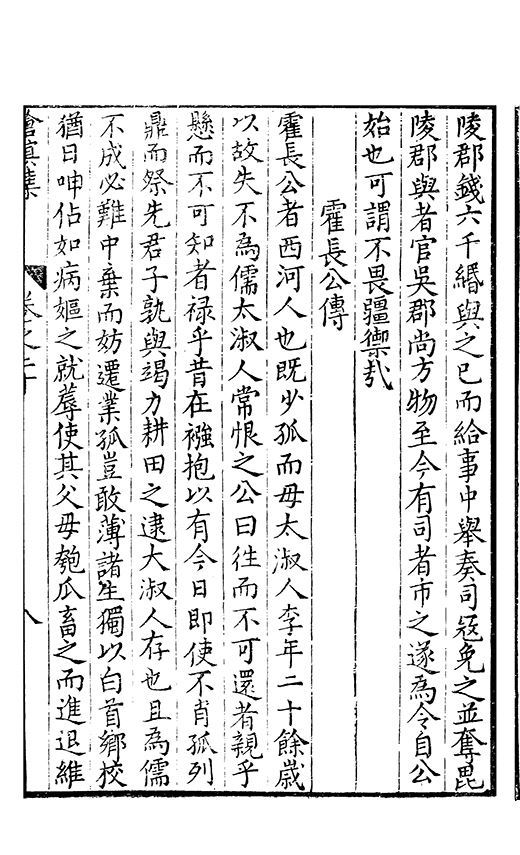 陵郡錢六千緡與之已而給事中舉奏司寇免之並奪毘
陵郡與者官吳郡尚方物至今有司者市之遂為令自公
始也可謂不畏彊禦㢤
霍長公傳
霍長公者西河人也既少孤而母太淑人李年二十餘歲
以故失不為儒太淑人常恨之公曰往而不可還者親乎
懸而不可知者禄乎昔在襁抱以有今日即使不肖孤列
鼎而祭先君子孰與竭力耕田之逮大淑人存也且為儒
不成必難中棄而妨遷業孤豈敢薄諸生獨以白首鄉校
猶日呻佔如病嫗之就蓐使其父母匏瓜畜之而進退維
滄溟集
卷之二十
八